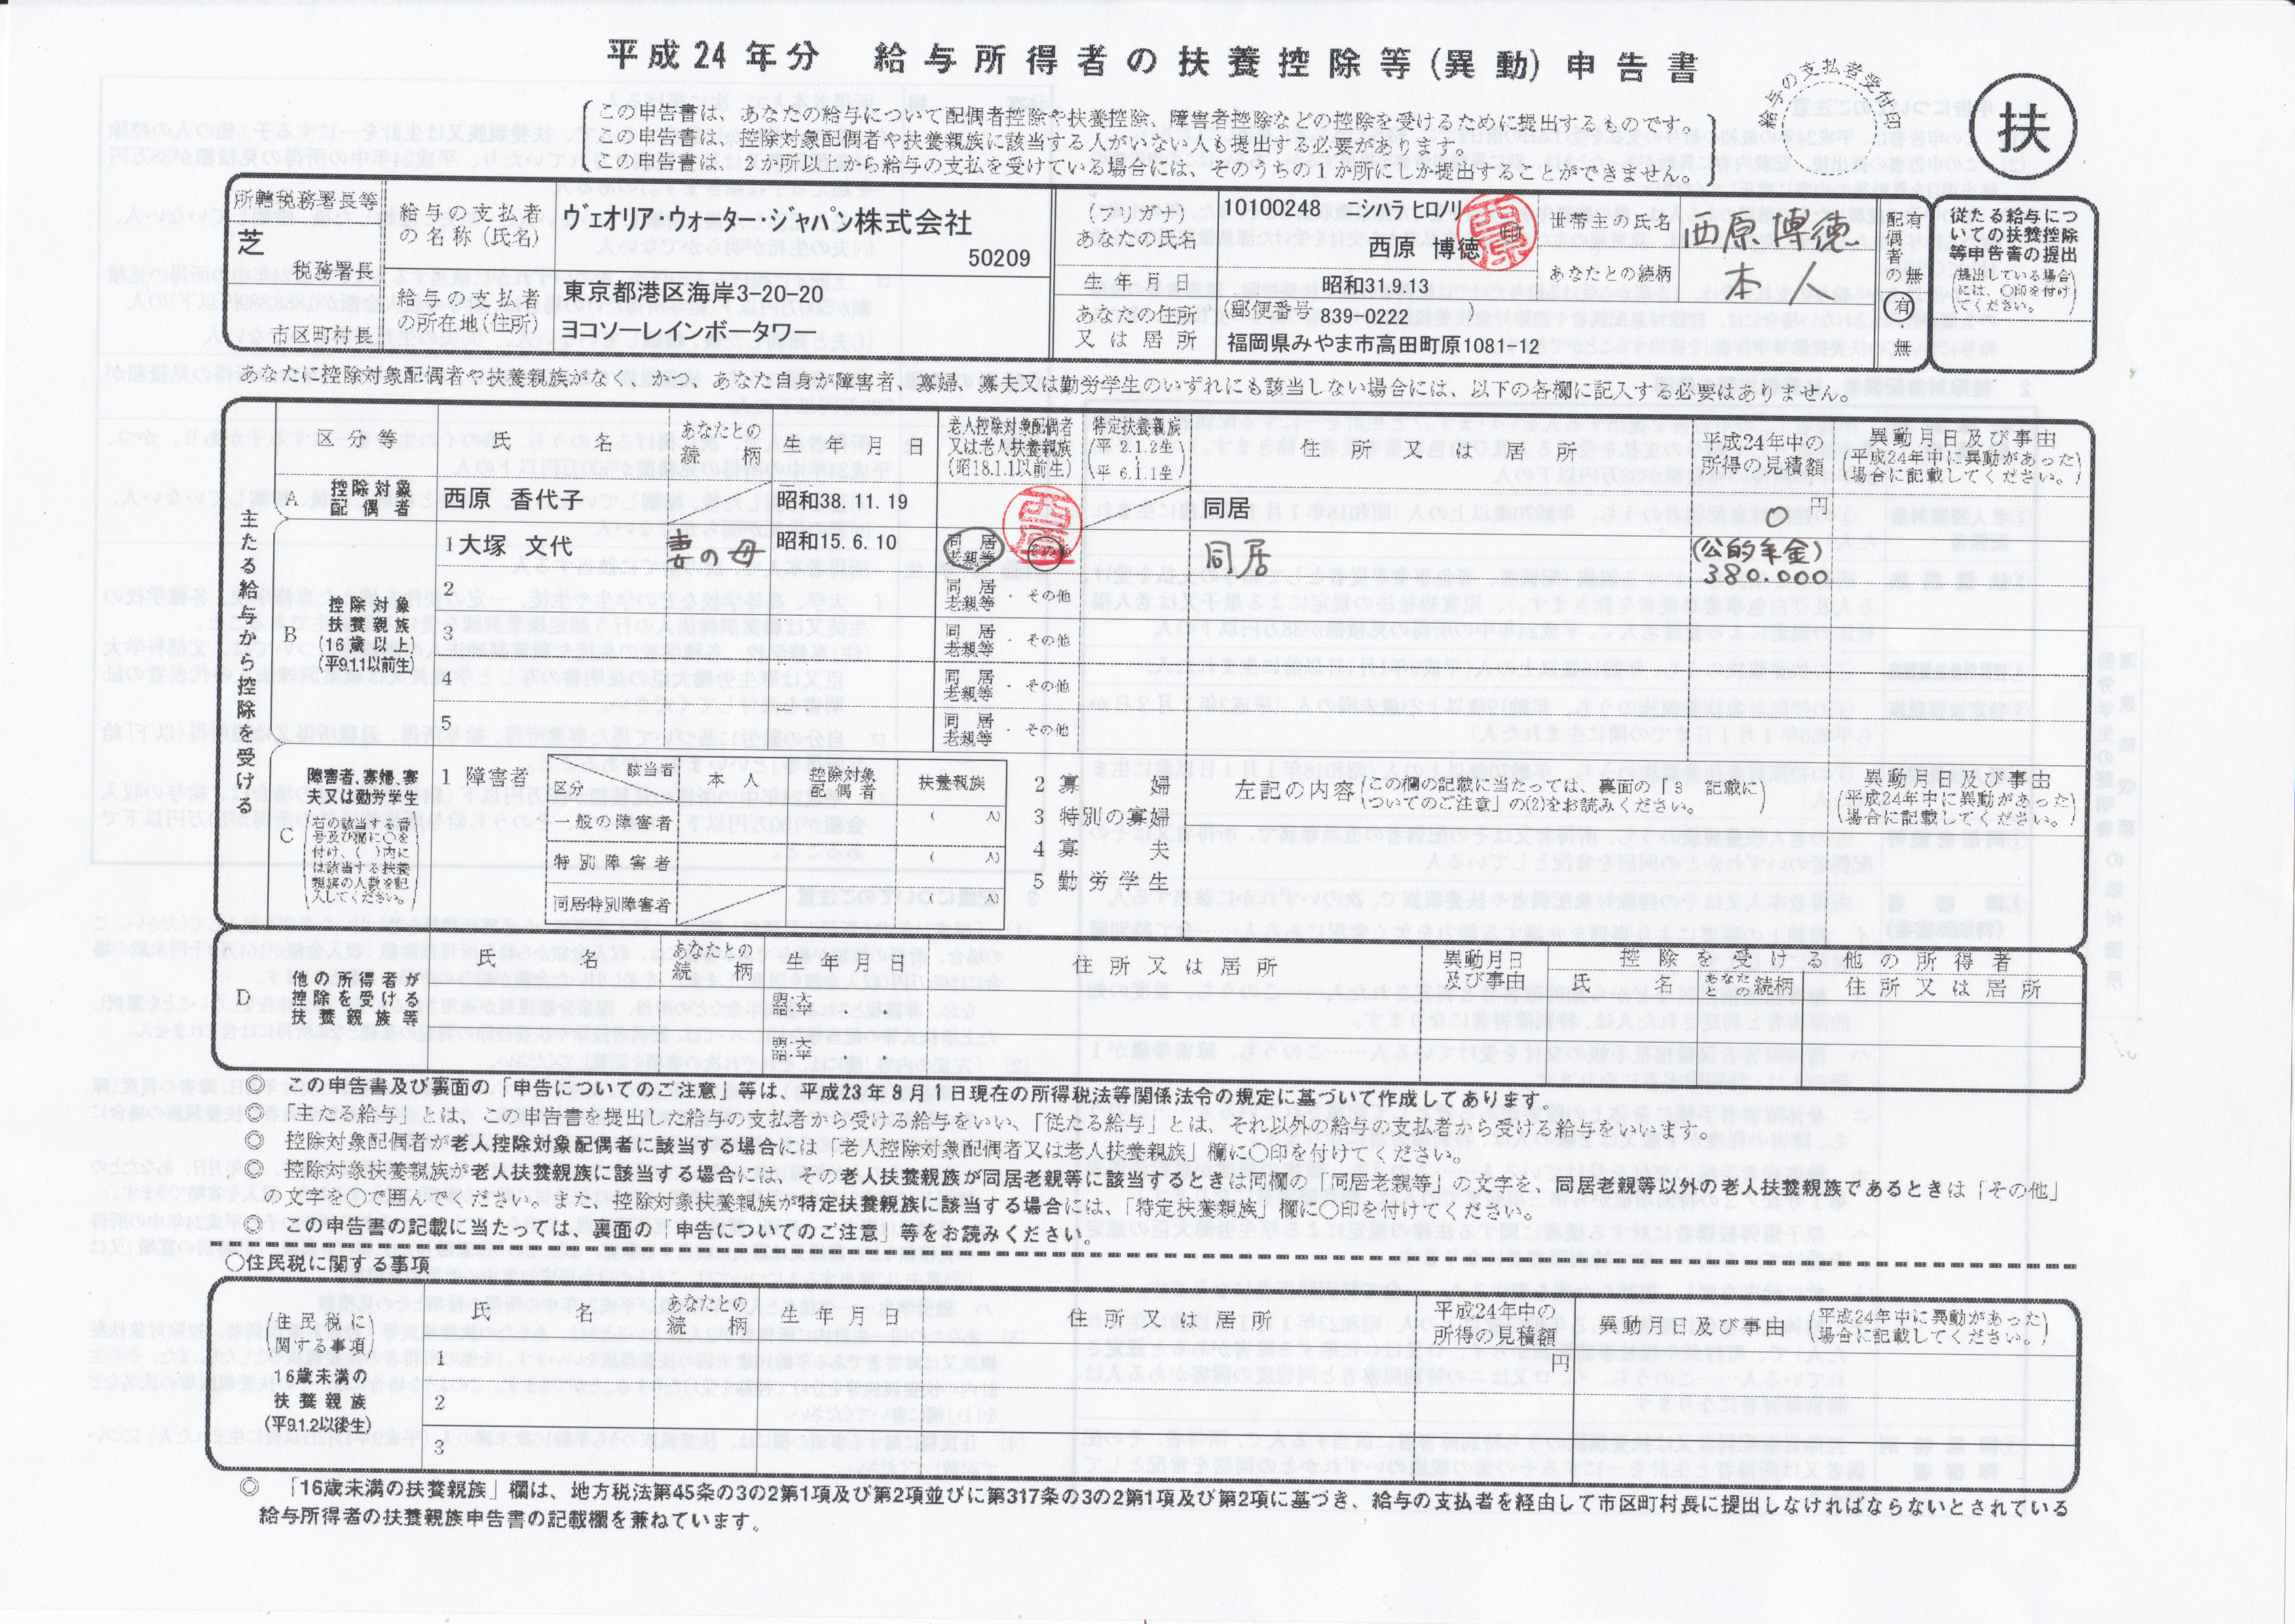 平成24年分 給与所得者の扶養控除等(異動)申告書
この申告書は、あなたの給与について配偶者控除や扶養控除、障害者控除などの控除を受けるために提出するものです。
この申告書は、控除対象配偶者や扶養親族に該当する人がいない人も提出する必要があります。
この申告書は、2か所以上から給与の支払を受けている場合には、そのうちの1か所にしか提出することができません。
給与の支払者受付印
扶
所轄税務署長等
芝
税務署長
市区町村長
給与の支払者の名称(氏名)
ヴェオリア・ウォーター・ジャパン株式会社
50209
給与の支払者の所在地(住所)
東京都港区海岸3-20-20
ヨコソーレインボータワー
(フリガナ)
あなたの氏名
10100248 ニシハラ ヒロノリ
西原 博徳
印
生年月日
昭和31.9.13
あなたの住所又は居所
(郵便番号 839-0222 )
福岡県みやま市高田町原1081-12
世帯主の氏名
西原博徳
あなたとの続柄
本人
配偶者の有無
有
無
従たる給与についての扶養控除等申告書の提出
(提出している場合には、○印を付けてください。)
あなたに控除対象配偶者や扶養親族がなく、かつ、あなた自身が障害者、寡婦、寡夫又は勤労学生のいずれにも該当しない場合には、以下の各欄に記入する必要はありません。
主たる給与から控除を受ける
区分等
氏名
あなたとの続柄
生年月日
老人控除対象配偶者又は老人扶養親族(昭18.1.1以前生)
特定扶養親族(平2.1.2生~平6.1.1生)
住所又は居所
平成24年中の所得の見積額
異動月日及び事由(平成24年中に異動があった場合に記載してください。)
A 控除対象配偶者
西原 香代子
昭和38.11.19
同居
0円
B 控除対象扶養親族(16歳以上)(平9.1.1以前生)
1 大塚 文代
妻の母
昭和15.6.10
同居老親等・その他
同居
(公的年金)
380.000
2 同居老親等・その他
3 同居老親等・その他
4 同居老親等・その他
5 同居老親等・その他
C 障害者、寡婦、寡夫又は勤労学生
(右の該当する番号及び欄に○を付け、( )内には該当する扶養親族の人数を記入してください。)
1 障害者
該当者
区分
本人
控除対象配偶者
扶養親族
一般の障害者 ( 人)
特別障害者 ( 人)
同居特別障害者 ( 人)
2 寡婦
3 特別の寡婦
4 寡夫
5 勤労学生
左記の内容(この欄の記載に当たっては、裏面の「3 記載についてのご注意」の(2)をお読みください。)
異動月日及び事由(平成24年中に異動があった場合に記載してください。)
D 他の所得者が控除を受ける扶養親族等
氏名
あなたとの続柄
生年月日
住所又は居所
異動月日及び事由
控除を受ける他の所得者
氏名
あなたとの続柄
住所又は居所
明・大昭・平 ・ ・
明・大昭・平 ・ ・
◎ この申告書及び裏面の「申告についてのご注意」等は、平成23年9月1日現在の所得税法等関係法令の規定に基づいて作成してあります。
◎ 「主たる給与」とは、この申告書を提出した給与の支払者から受ける給与をいい、「従たる給与」とは、それ以外の給与の支払者から受ける給与をいいます。
◎ 控除対象配偶者が老人控除対象配偶者に該当する場合には「老人控除対象配偶者又は老人扶養親族」欄に○印を付けてください。
◎ 控除対象扶養親族が老人扶養親族に該当する場合には、その老人扶養親族が同居老親等に該当するときは同欄の「同居老親等」の文字を、同居老親等以外の老人扶養親族であるときは「その他」
の文字を○で囲んでください。また、控除対象扶養親族が特定扶養親族に該当する場合には、「特定扶養親族」欄に○印を付けてください。
◎ この申告書の記載に当たっては、裏面の「申告についてのご注意」等をお読みください。
○住民税に関する事項
(住民税に関する事項)
16歳未満の扶養親族
(平9.1.2以後生)
氏名
あなたとの続柄
生年月日
住所又は居所
平成24年中の所得の見積額
異動月日及び事由 (平成24年中に異動があった場合に記載してください。)
1 円
2
3
◎ 「16歳未満の扶養親族」欄は、地方税法第45条の3の2第1項及び第2項並びに第317条の3の2第1項及び第2項に基づき、給与の支払者を経由して市区町村長に提出しなければならないとされている
給与所得者の扶養親族申告書の記載欄を兼ねています。